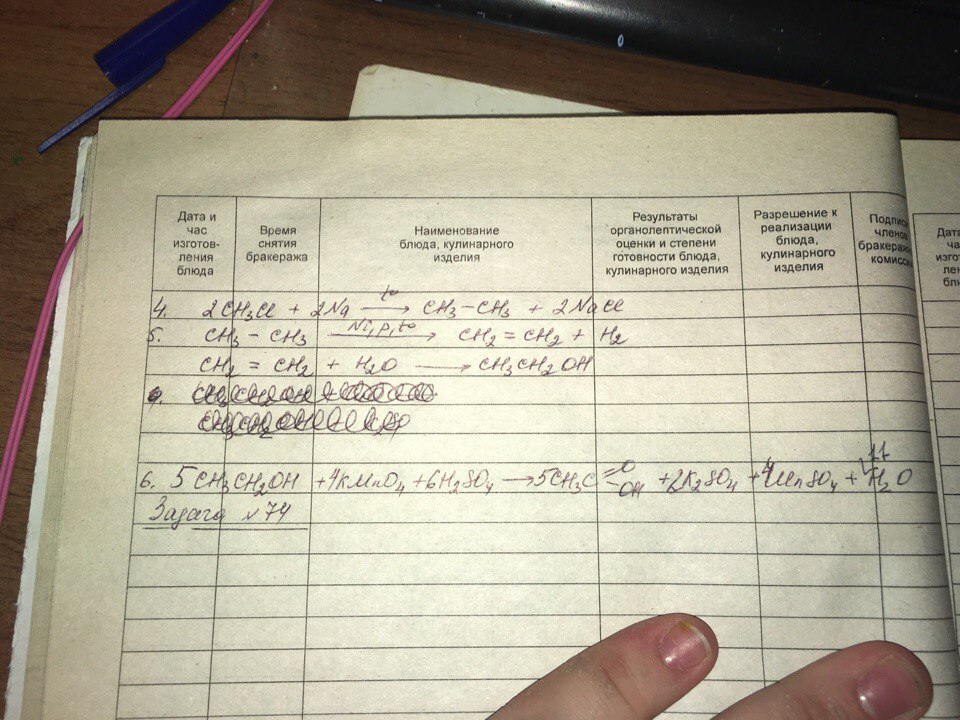 Дата и час изготов-ления блюда
Время снятия бракеража
Наименование блюда, кулинарного изделия
Результаты органолептической оценки и степени готовности блюда, кулинарного изделия
Разрешение к реализации блюда, кулинарного изделия
4. 2CH3Cl + 2Na —t°→ CH3–CH3 + 2NaCl
5. CH3 – CH3 —Ni,p,t°→ CH2=CH2 + H2
CH2 = CH2 + H2O ⟶ CH3CH2OH
6. 5CH3CH2OH +4KMnO4 +6H2SO4 → 5CH3C =O –OH +2K2SO4 +4MnSO4 + 11H2O
Задача №74